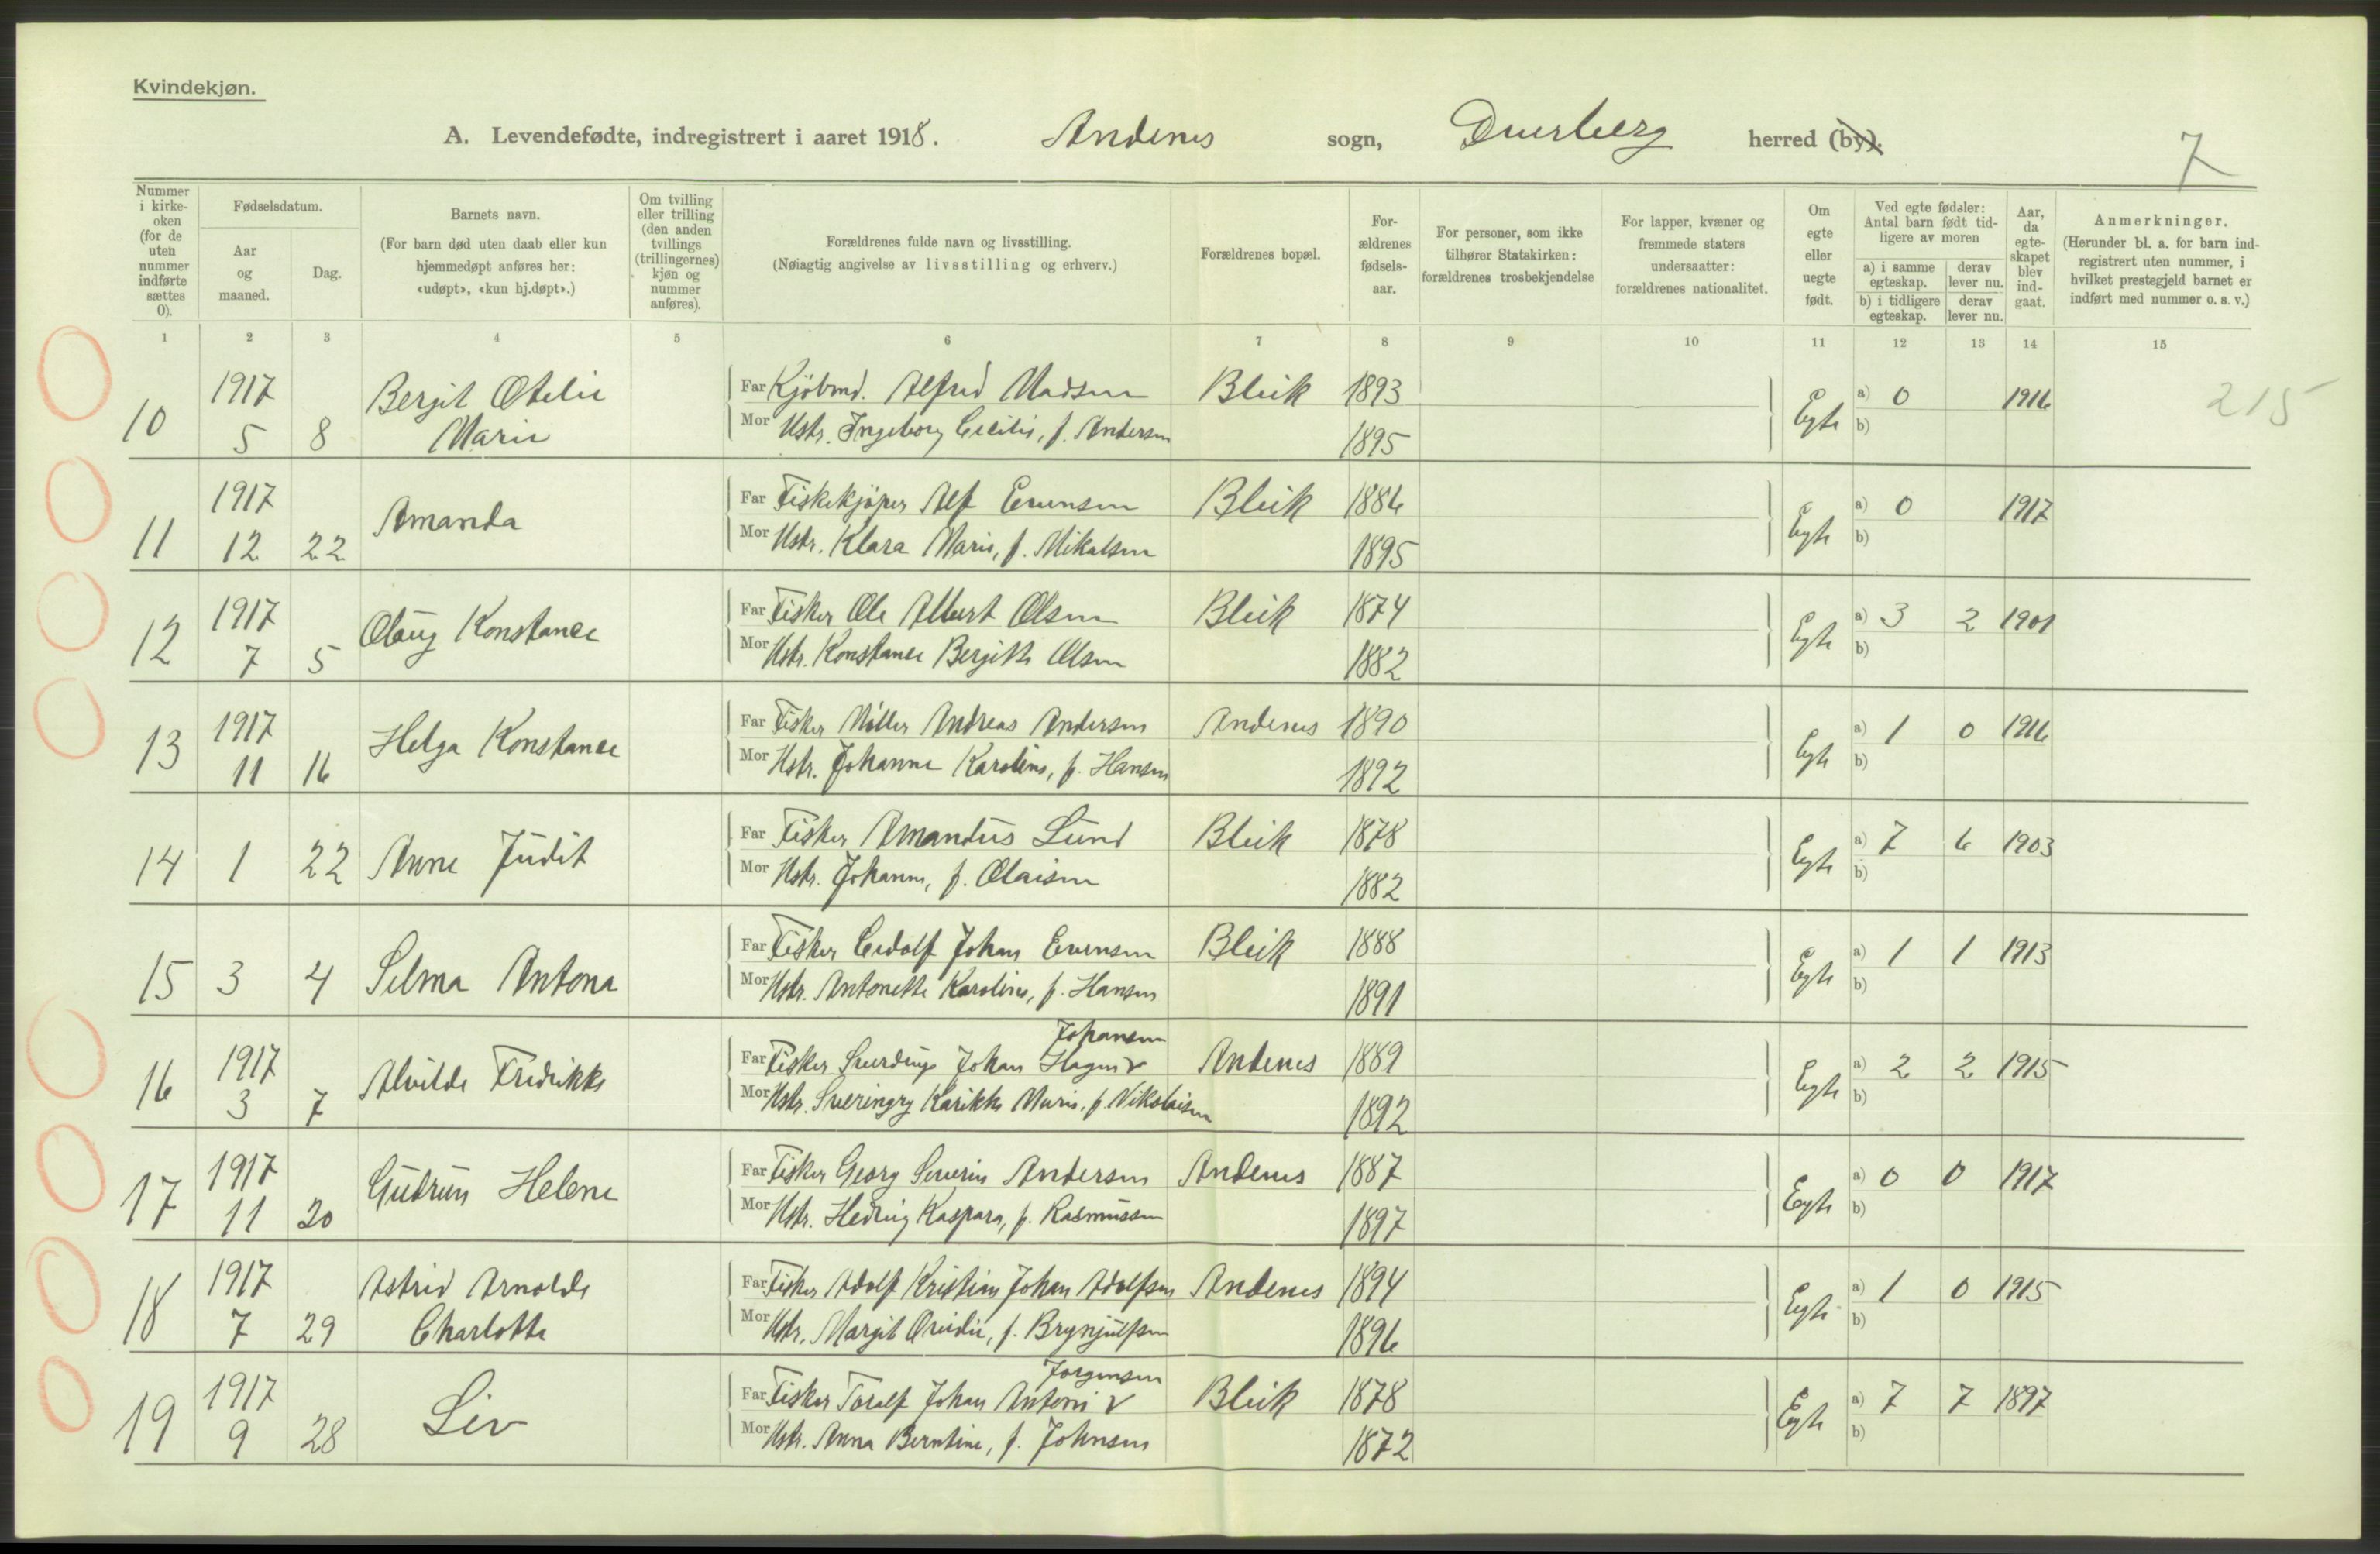 Kvindekjøn.
A. Levendefødte, indregistrert i aaret 1918. Andenes sogn, Dverberg herred (by).
7
Nummer i kirke-oken (for de uten nummer indførte sættes 0).
Fødselsdatum.
Aar og maaned.
Dag.
Barnets navn.
(For barn død uten daab eller kun hjemmedøpt anføres her: «udøpt», «kun hj.døpt».)
Om tvilling eller trilling (den anden tvillings (trillingernes) kjøn og nummer anføres).
Forældrenes fulde navn og livsstilling.
(Nøiagtig angivelse av livsstilling og erhverv.)
Forældrenes bopæl.
For-ældrenes fødsels-aar.
For personer, som ikke tilhører Statskirken: forældrenes trosbekjendelse
For lapper, kvæner og fremmede staters undersaatter: forældrenes nationalitet.
Om egte eller uegte født.
Ved egte fødsler: Antal barn født tid-ligere av moren
a) i samme egteskap. derav lever nu.
b) i tidligere egteskap. derav lever nu.
Aar, da egte-skapet blev ind-gaat.
Anmerkninger.
(Herunder bl. a. for barn ind-registrert uten nummer, i hvilket prestegjeld barnet er indført med nummer o. s. v.)
1 2 3 4 5 6 7 8 9 10 11 12 13 14 15
10 1917 5 8 Bergit Otelie Marie
Far Kjøbmd. Alfred Madsen Bleik 1893 Egte a) 0 1916 215
Mor Hstr. Ingeborg Cecilie, f. Andersen 1895 b)
11 1917 12 22 Amanda
Far Fiskekjøper Alf Evensen Bleik 1886 Egte a) 0 1917
Mor Hstr. Klara Marie, f. Mikalsen 1895 b)
12 1917 7 5 Olaug Konstance
Far Fisker Ole Albert Olsen Bleik 1874 Egte a) 3 2 1901
Mor Hstr. Konstance Bergitte Olsen 1882 b)
13 1917 11 16 Helga Konstance
Far Fisker Møller Andreas Andersen Andenes 1890 Egte a) 1 0 1916
Mor Hstr. Johanne Karoline, f. Hansen 1892 b)
14 1 22 Anne Judit
Far Fisker Amandus Lund Bleik 1878 Egte a) 7 6 1903
Mor Hstr. Johanne, f. Olaisen 1882 b)
15 3 4 Selma Antona
Far Fisker Cedolf Johan Evensen Bleik 1888 Egte a) 1 1 1913
Mor Hstr. Antonette Karoline, f. Hansen 1891 b)
16 1917 3 7 Alvilde Fredrikke
Johansen
Far Fisker Johan Hagen v Andenes 1889 Egte a) 2 2 1915
Mor Hstr. Karikke Marie, f. Nikolaisen 1892 b)
17 1917 11 20 Gudrun Helene
Far Fisker Georg Severin Andersen Andenes 1887 Egte a) 0 0 1917
Mor Hstr. Hedvig Kaspara, f. Rasmussen 1897 b)
18 1917 7 29 Astrid Arnolde Charlotte
Far Fisker Adolf Kristian Johan Adolfsen Andenes 1894 Egte a) 1 0 1915
Mor Hstr. Margit Ovidie, f. Brynjulfsen 1896 b)
19 1917 9 28 Liv
Jorgensen
Far Fisker Toralf Johan Antoni v Bleik 1878 Egte a) 7 7 1897
Mor Hstr. Anna Berntine, f. Johnsen 1872 b)